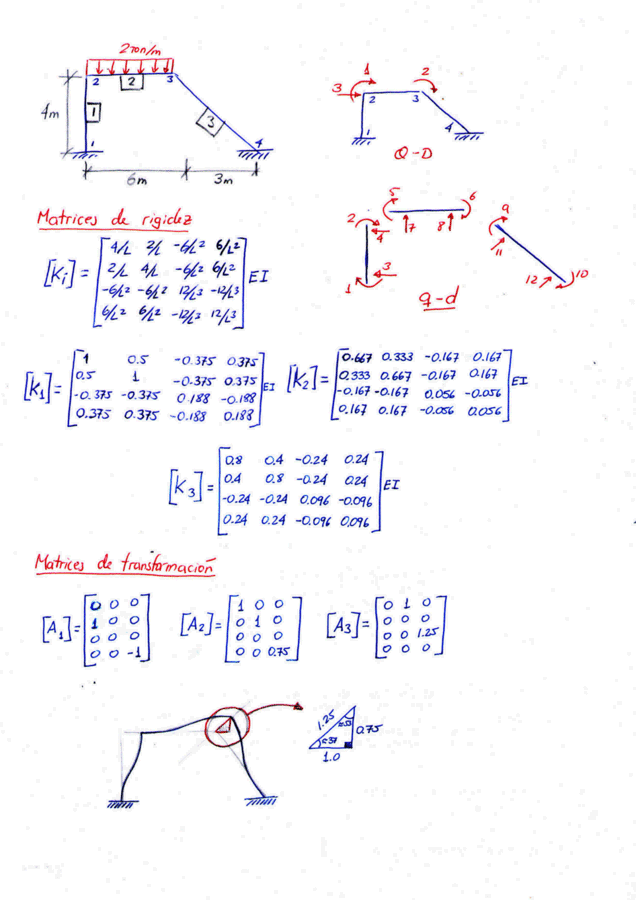 2 Ton/m
2 2 3
4m
1
3
1 4
6m 3m
1 2
3
2 3
1 4
Q-D
Matrices de rigidez
[Ki] = [4/L 2/L -6/L² 6/L²
2/L 4/L -6/L² 6/L²
-6/L² -6/L² 12/L³ -12/L³
6/L² 6/L² -12/L³ 12/L³] EI
5 6
2 4 7 8
1 3
9
11
12 10
q-d
[K1] = [1 0.5 -0.375 0.375
0.5 1 -0.375 0.375
-0.375 -0.375 0.188 -0.188
0.375 0.375 -0.188 0.188] EI
[K2] = [0.667 0.333 -0.167 0.167
0.333 0.667 -0.167 0.167
-0.167 -0.167 0.056 -0.056
0.167 0.167 -0.056 0.056] EI
[K3] = [0.8 0.4 -0.24 0.24
0.4 0.8 -0.24 0.24
-0.24 -0.24 0.096 -0.096
0.24 0.24 -0.096 0.096] EI
Matrices de transformación
[A1] = [0 0 0
1 0 0
0 0 0
0 0 -1]
[A2] = [1 0 0
0 1 0
0 0 0
0 0 0.75]
[A3] = [0 1 0
0 0 0
0 0 1.25
0 0 0]
1.25
0.75
1.0